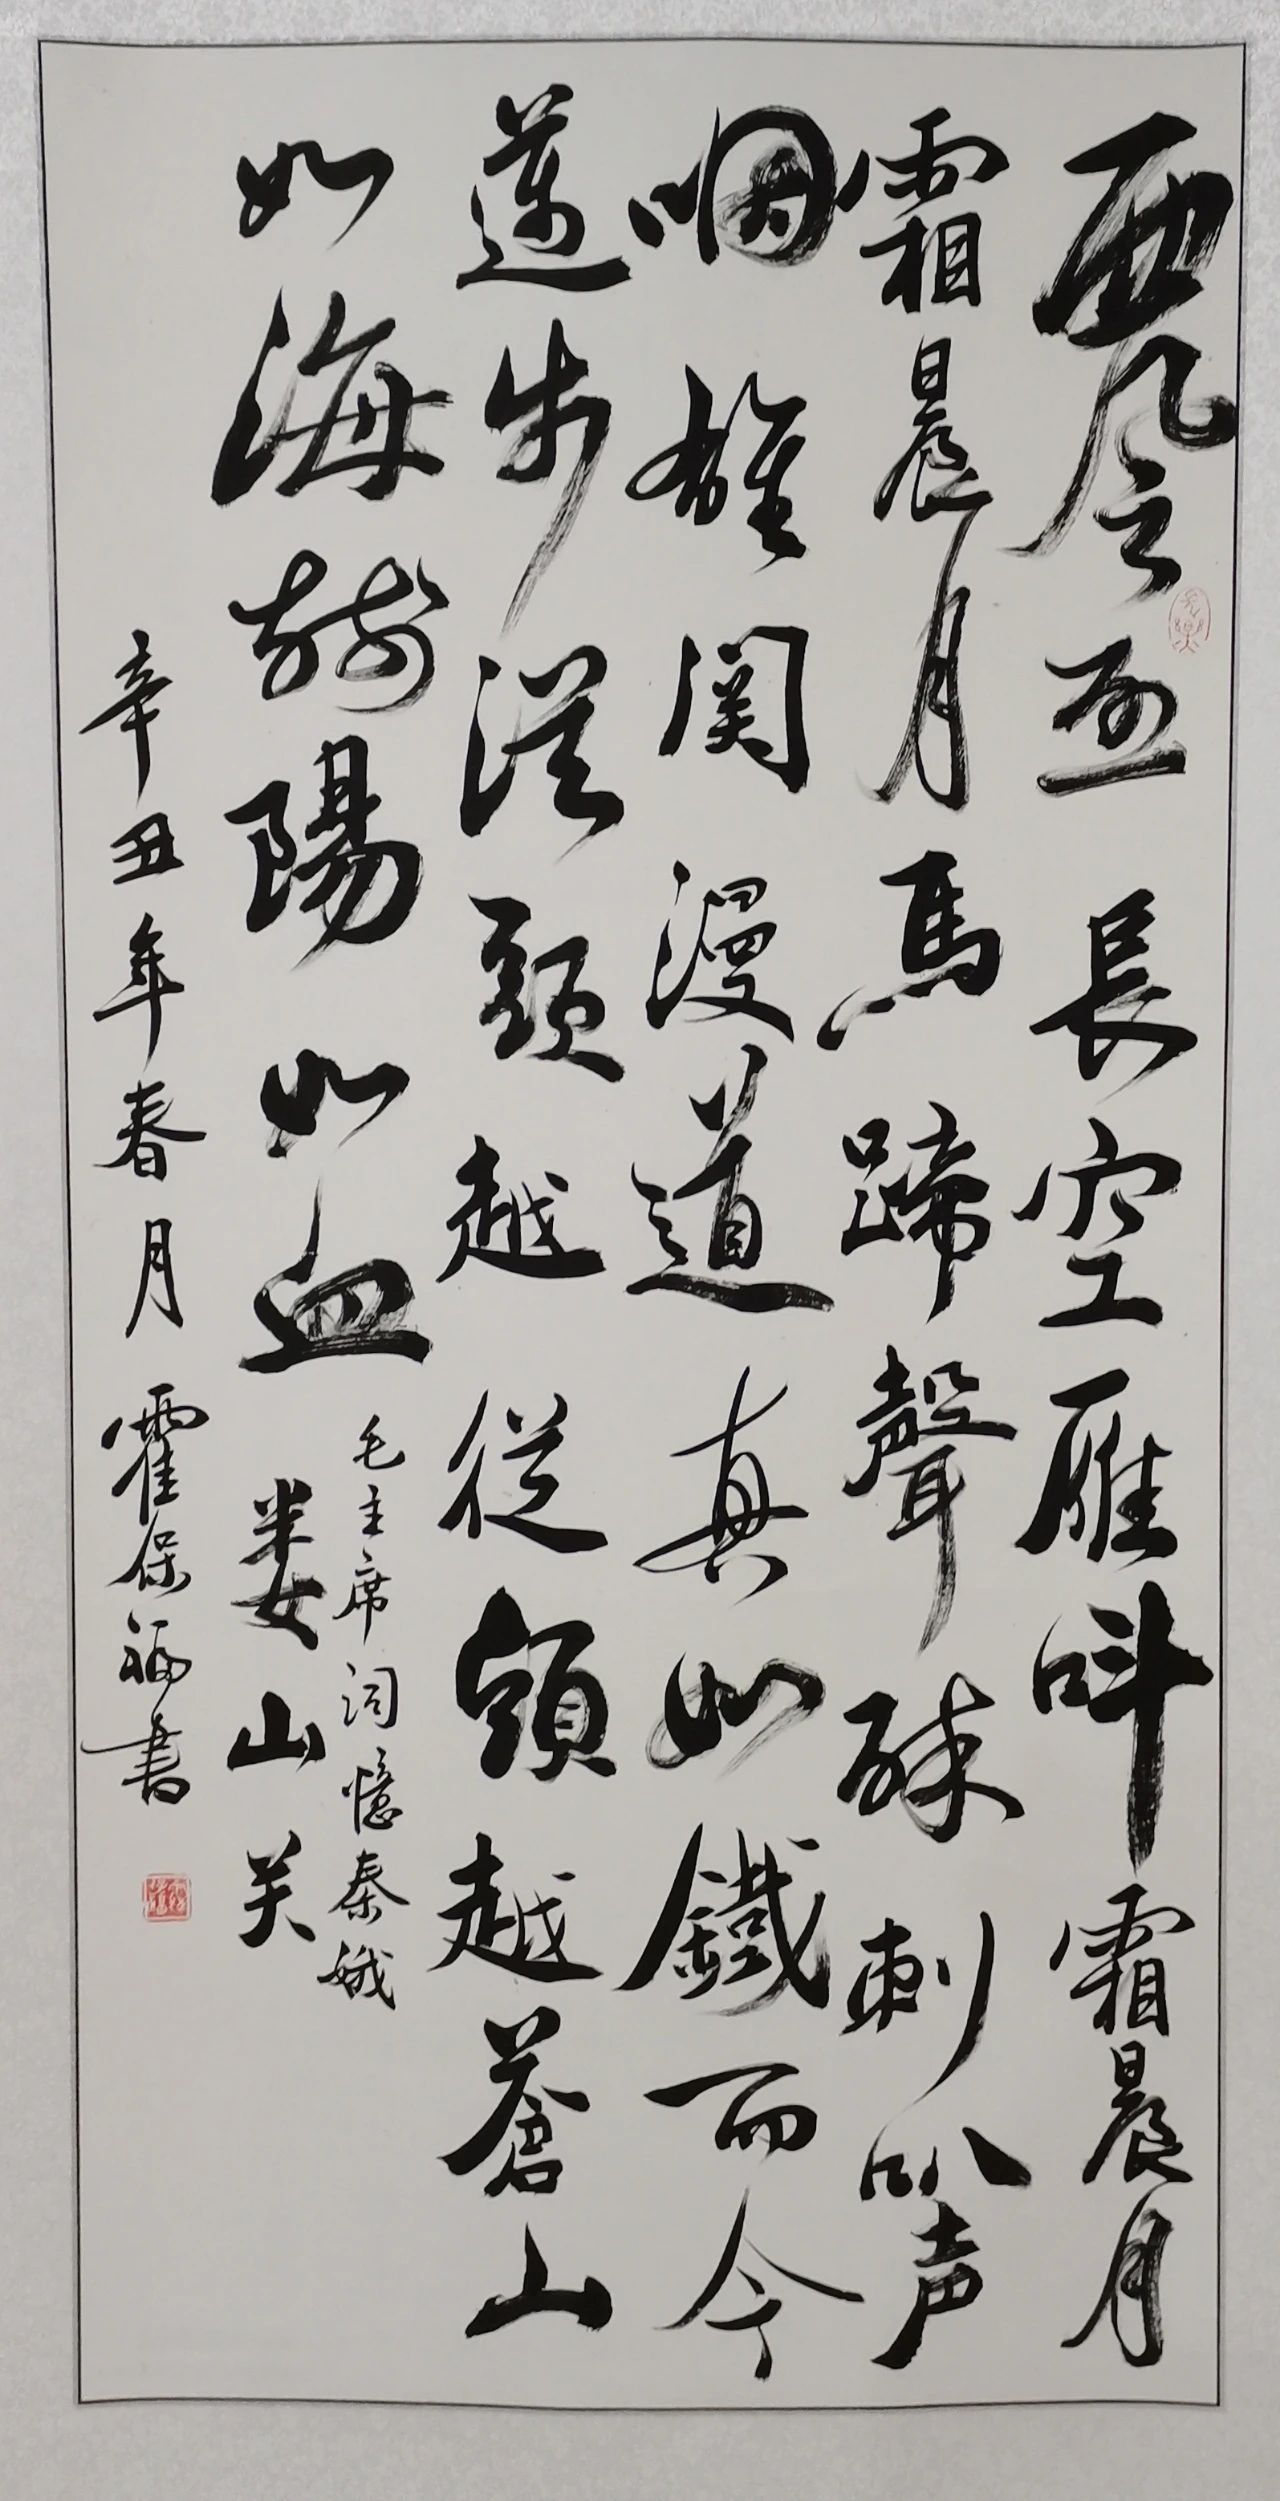 西风烈長空雁叫霜晨月
霜晨月馬蹄聲碎喇叭声
咽雄関漫道真如鐵而今
邁步從頭越從頭越蒼山
如海残陽如血
毛主席词憶秦娥
娄山关
辛丑年春月霍保福書